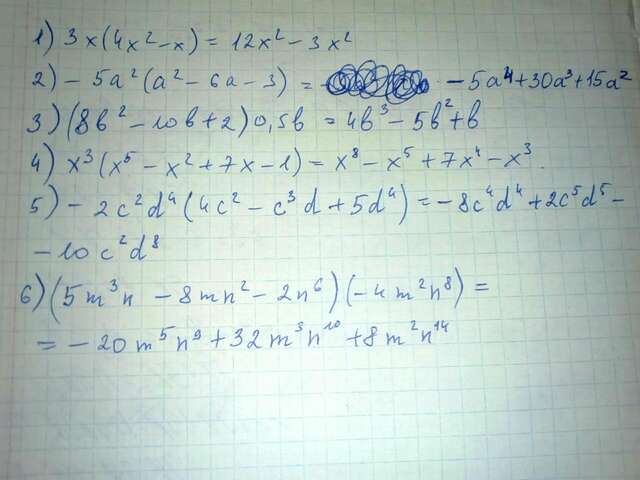 1) 3x(4x² - x) = 12x² - 3x²
2) - 5a²(a² - 6a - 3) = - 5a⁴ + 30a³ + 15a²
3) (8b² - 10b + 2) 0,5b = 4b³ - 5b² + b
4) x³(x⁵ - x² + 7x - 1) = x⁸ - x⁵ + 7x⁴ - x³.
5) - 2c²d⁴(4c² - c³d + 5d⁴) = - 8c⁴d⁴ + 2c⁵d⁵ -
- 10c²d⁸
6) (5m³n - 8mn² - 2n⁶)(-4m²n⁸) =
= - 20m⁵n⁹ + 32m³n¹⁰ + 8m²n¹⁴